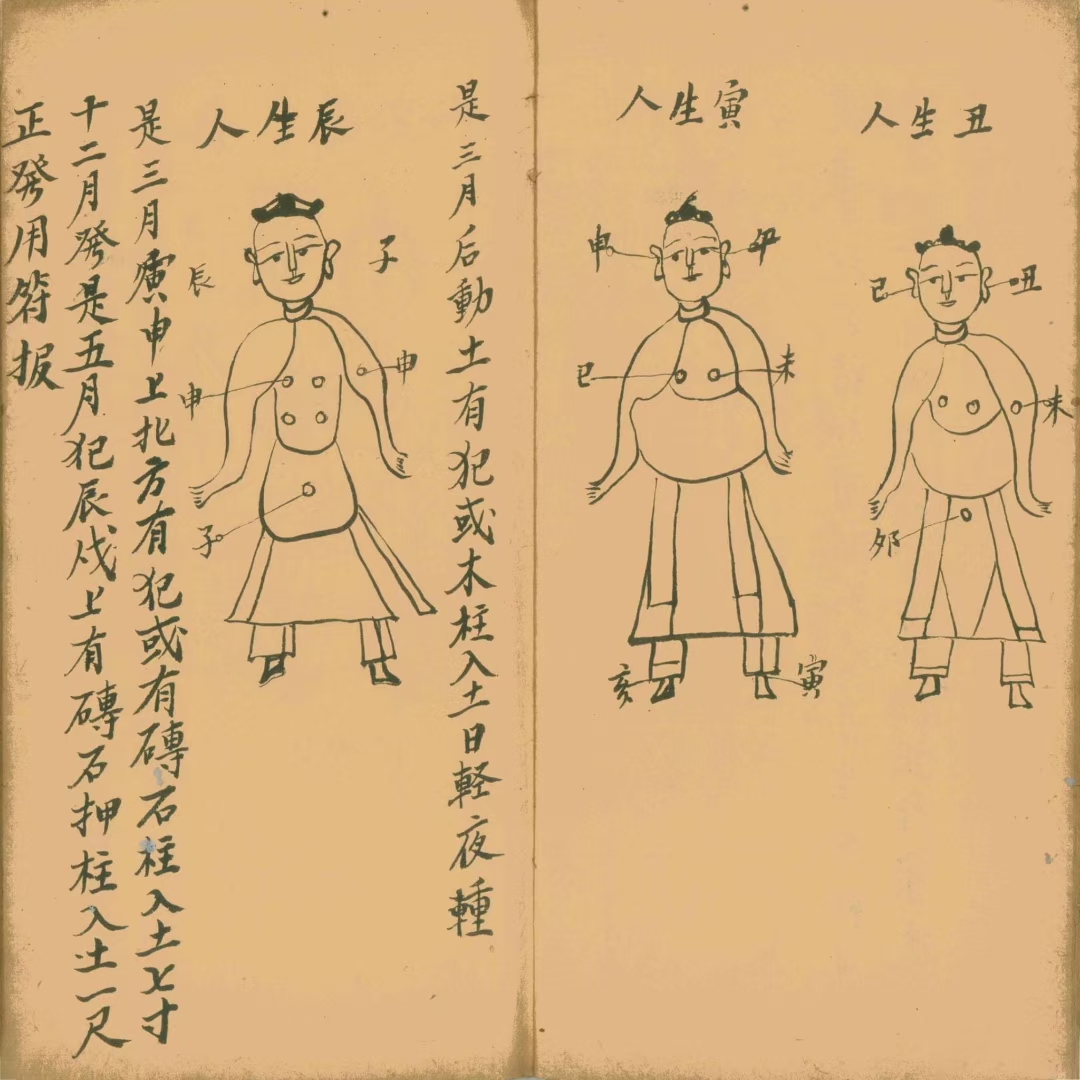 丑生人
巳
丑
未
卯
寅生人
申
丑
巳
未
亥
寅
是三月后動土有犯或木柱入土日軽夜種
辰生人
辰
子
申
申
子
是三月寅申上北方有犯或有磚石柱入土七寸
十二月發是五月犯辰戌上有磚石押柱入土一尺
正發用符报